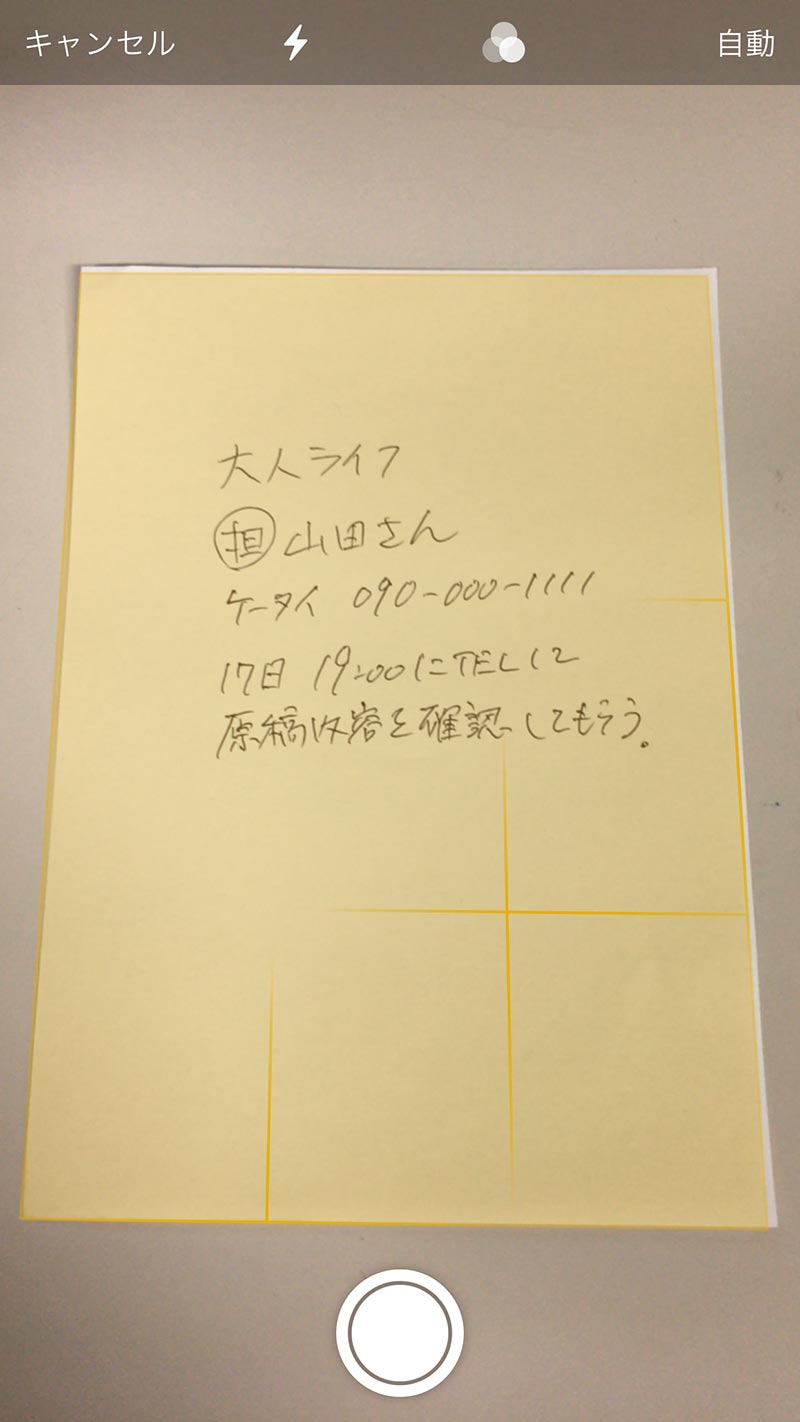 キャンセル 自動
大人ライフ
担 山田さん
ケータイ 090-000-1111
17日 19:00にTELして
原稿内容を確認してもらう。